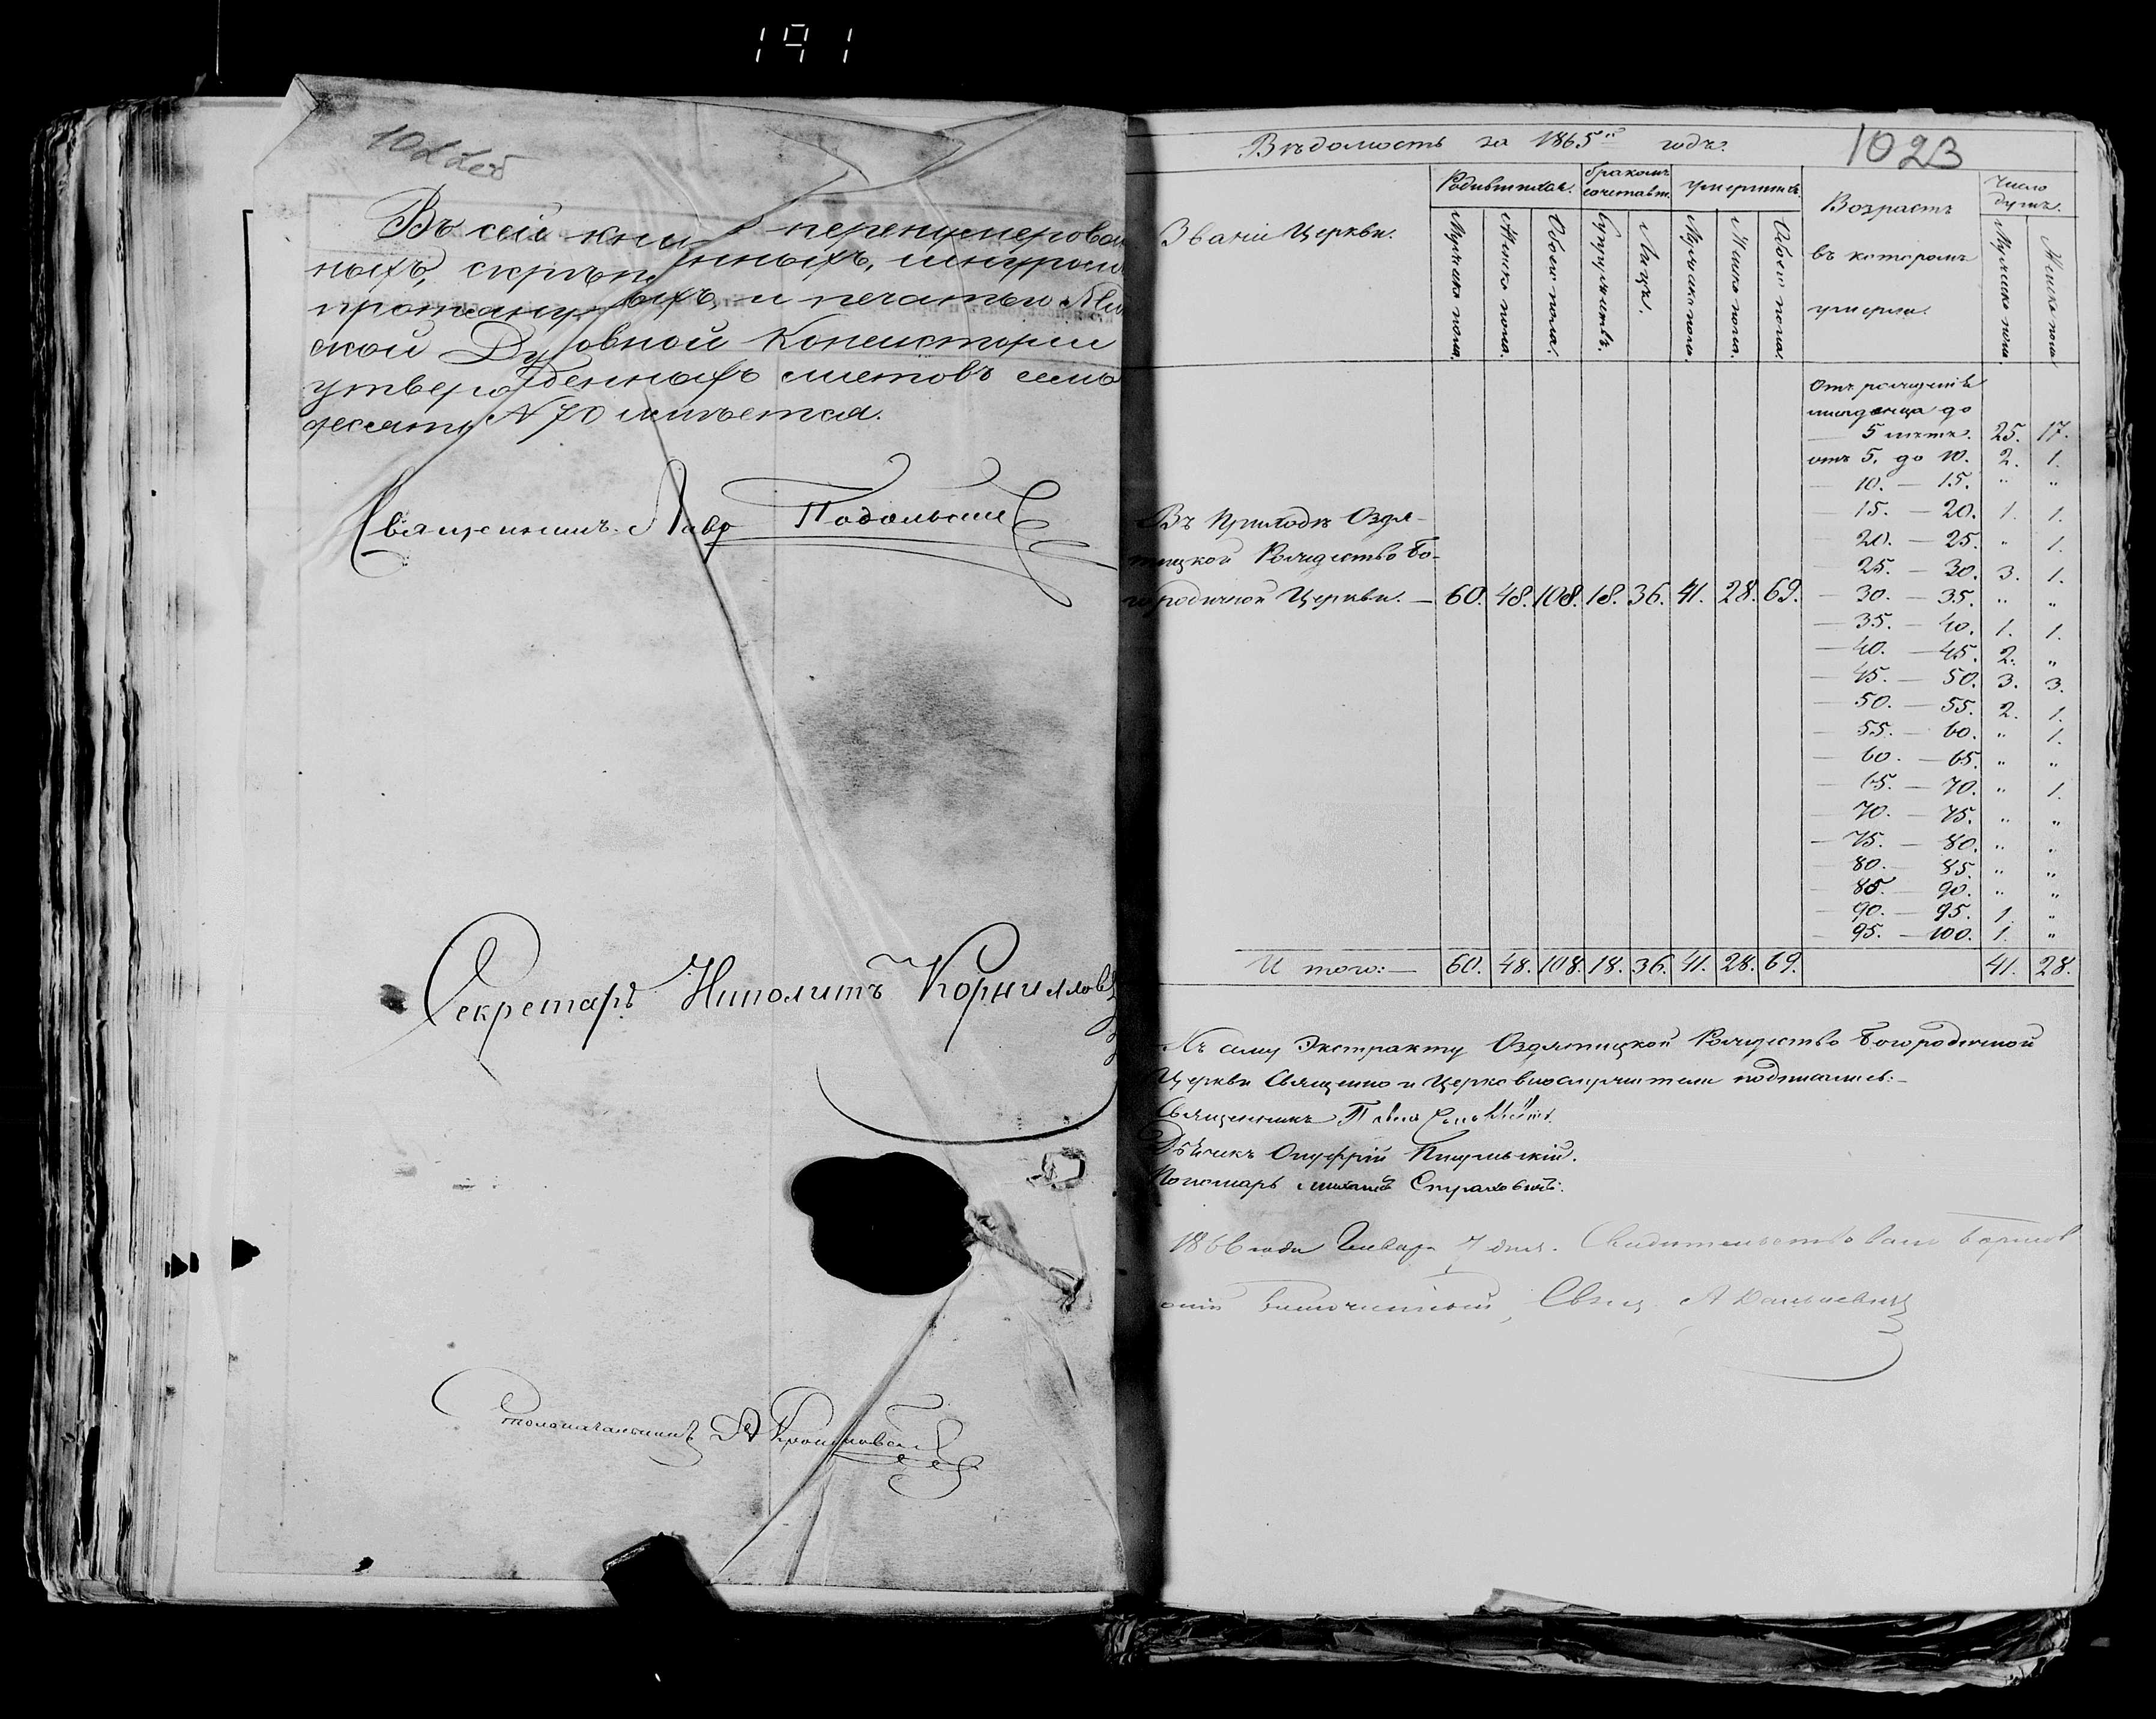 191
Въ сей кни перенумерован
ныхъ, скрѣп нныхъ, шнуромъ
протяну ыхъ, и печатью Мин
ской Духовной Консисторіи
утвержденныхъ листовъ семь
десятъ N 70 имѣется.
Священникъ Подольскій
Секретарь Иполитъ Корниллов
Столоначальникъ
1023
Вѣдомость за 1865й годъ.
Званіе Церкви.
Родившихся.
бракомъ сочетавш.
умершихъ.
Возрастъ въ которомъ умерли.
Число душъ.
Мужеска пола. Женска пола. Обоего пола. Супружествъ. Лицъ. Мужеска пола. Женска пола. Обоего пола. Мужеска пола. Женска пола
Отъ рожденія
младенца до
— 5 лѣтъ. 25. 17.
отъ 5. до 10. 2. 1.
— 10. — 15. " "
— 15. — 20. 1. 1.
— 20. — 25. " 1.
— 25. — 30. 3. 1.
Въ приходѣ Оздя-
тицкой Рождество Бо-
городичной Церкви. — 60. 48. 108. 18. 36. 41. 28. 69.
— 30. — 35. " "
— 35. — 40. 1. 1.
— 40. — 45. 2. "
— 45. — 50. 3. 3.
— 50. — 55. 2. 1.
— 55. — 60. " 1.
— 60. — 65. " "
— 65. — 70. " 1.
— 70. — 75. " "
— 75. — 80. " "
— 80. — 85. " "
— 85. — 90. " "
— 90. — 95. 1. "
— 95. — 100. 1. "
И того: — 60. 48. 108. 18. 36. 41. 28. 69. 41. 28.
Къ сему Экстракту Оздятицкой Рождество Богородичной
Церкви Священно и Церковнослужители подписались:—
Священникъ
Дьячекъ Онуфрій
Пономарь Михаилъ
1866 года Января 7 дня. Свидѣтельствовалъ Борисов
скій Благочинный, Свящ.